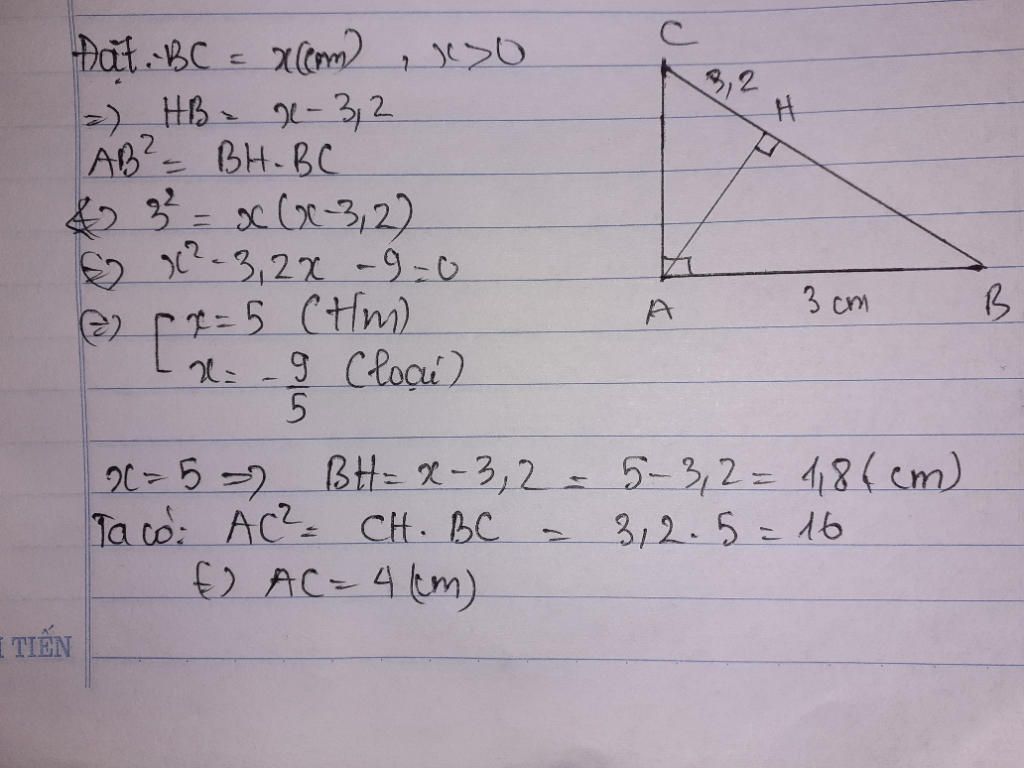 Đặt: BC = x(cm) , x>0
=> HB = x - 3,2
AB² = BH.BC
<=> 3² = x(x-3,2)
<=> x² - 3,2x - 9 = 0
<=> [ x = 5 (t/m)
x = -9/5 (loại)
x = 5 => BH = x - 3,2 = 5 - 3,2 = 1,8 (cm)
Ta có: AC² = CH. BC = 3,2. 5 = 16
<=> AC = 4 (cm)
C
3,2
H
A
3 cm
B
TIẾN